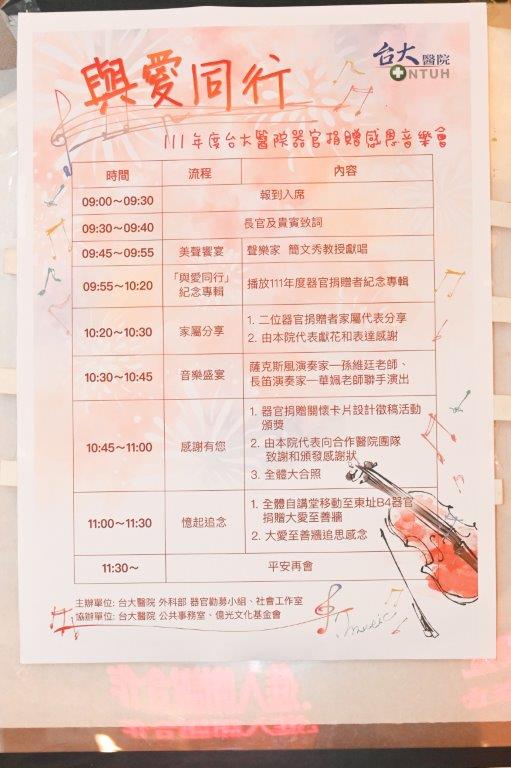 與愛同行
台大醫院
NTUH
111年度台大醫院器官捐贈感恩音樂會
時間 流程 內容
09:00～09:30 報到入席
09:30～09:40 長官及貴賓致詞
09:45～09:55 美聲饗宴 聲樂家 簡文秀教授獻唱
09:55～10:20 「與愛同行」 播放111年度器官捐贈者紀念專輯
紀念專輯
10:20～10:30 家屬分享 1. 二位器官捐贈者家屬代表分享
2. 由本院代表獻花和表達感謝
10:30～10:45 音樂盛宴 薩克斯風演奏家—孫維廷老師、
長笛演奏家—華姵老師聯手演出
10:45～11:00 感謝有您 1. 器官捐贈關懷卡片設計徵稿活動
頒獎
2. 由本院代表向合作醫院團隊
致謝和頒發感謝狀
3. 全體大合照
11:00～11:30 憶起追念 1. 全體自講堂移動至東址B4器官
捐贈大愛至善牆
2. 大愛至善牆追思感念
11:30～ 平安再會
主辦單位: 台大醫院 外科部 器官勸募小組、社會工作室
協辦單位: 台大醫院 公共事務室、億光文化基金會
music